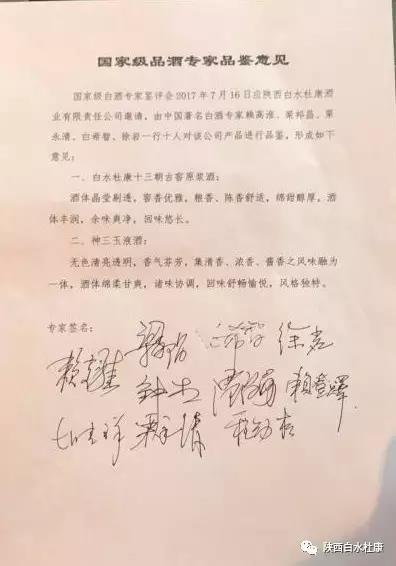 国家级品酒专家品鉴意见
国家级白酒专家鉴评会2017年7月16日应陕西白水杜康酒
业有限责任公司邀请，由中国著名白酒专家赖高淮、梁邦昌、栗
永清、白希智、徐岩一行十人对该公司产品进行品鉴，形成如下
意见：
一、白水杜康十三朝古窖原浆酒：
酒体晶莹剔透，窖香优雅，粮香、陈香舒适，绵甜醇厚，酒
体丰润，余味爽净，回味悠长。
二、神三玉液酒：
无色清亮透明，香气芬芳，集清香、浓香、酱香之风味融为
一体，酒体绵柔甘爽，诸味协调，回味舒畅愉悦，风格独特。
专家签名：
徐岩
赖登燡
陕西白水杜康